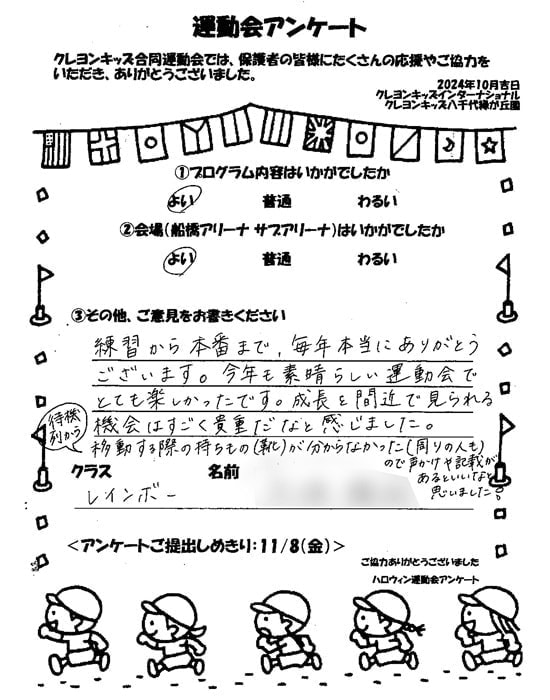 運動会アンケート
クレヨンキッズ合同運動会では、保護者の皆様にたくさんの応援やご協力を
いただき、ありがとうございました。
2024年10月吉日
クレヨンキッズインターナショナル
クレヨンキッズ八千代緑が丘園
①プログラム内容はいかがでしたか
よい 普通 わるい
②会場(船橋アリーナ サブアリーナ)はいかがでしたか
よい 普通 わるい
③その他、ご意見をお書きください
練習から本番まで、毎年本当にありがとう
ございます。今年も素晴らしい運動会で
とても楽しかったです。成長を間近で見られる
機会はすごく貴重だなと感じました。
待機
列から
移動する際の持ちもの(靴)が分からなかった(周りの人も)
ので声かけや記載が
あるといいなと
思いました
クラス 名前
レインボー
<アンケートご提出しめきり:11/8(金)>
ご協力ありがとうございました
ハロウィン運動会アンケート